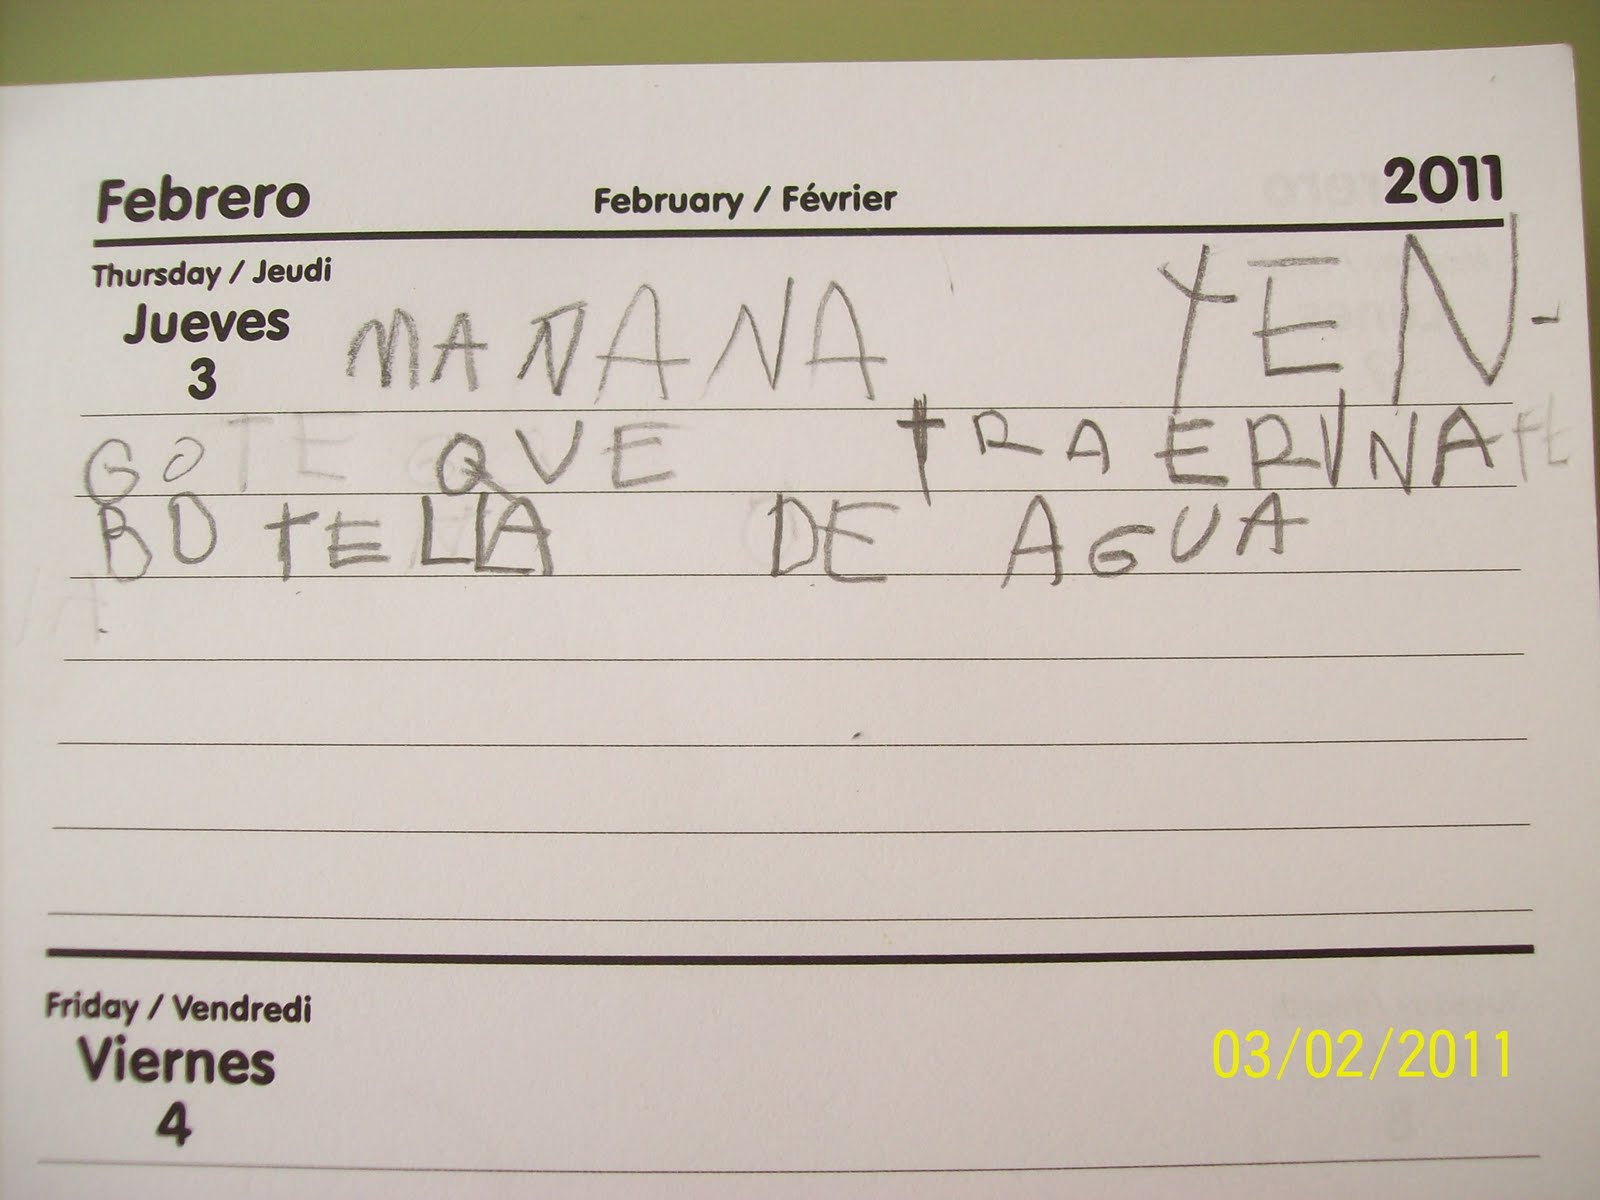 Febrero February / Février 2011
Thursday / Jeudi
Jueves
3
MAÑANA YEN-
GO QUE TRAER UNA
BOTELLA DE AGUA
Friday / Vendredi
Viernes
4
03/02/2011